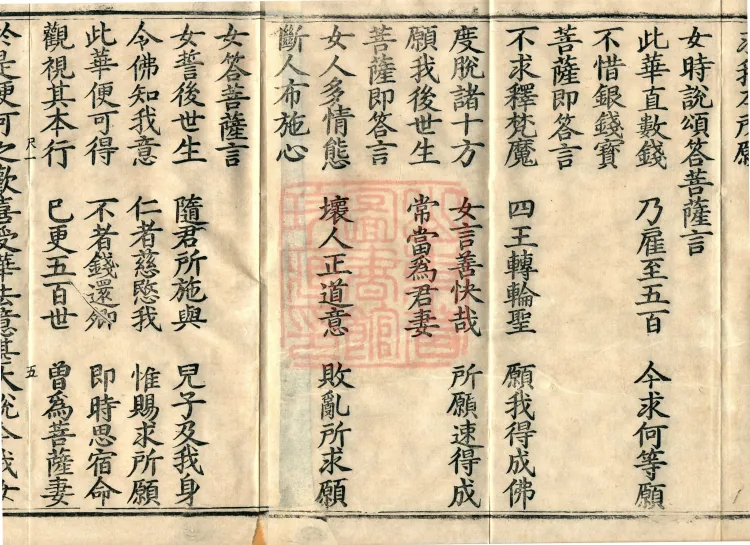 所願
女時說頌答菩薩言
此華直數錢 乃雇至五百 今求何等願
不惜銀錢寶
菩薩即答言
不求釋梵魔 四王轉輪聖 願我得成佛
度脫諸十方 女言善快哉 所願速得成
願我後世生 常當爲君妻
菩薩即答言
女人多情態 壞人正道意 敗亂所求願
斷人布施心
女答菩薩言
女誓後世生 隨君所施與 兒子及我身
令佛知我意 仁者慈愍我 惟賜求所願
此華便可得 不者錢還卿 即時思宿命
觀視其本行 已更五百世 曾爲菩薩妻
尺一 五
於是便可之歡喜受華去意甚大悅今我女
圖書館